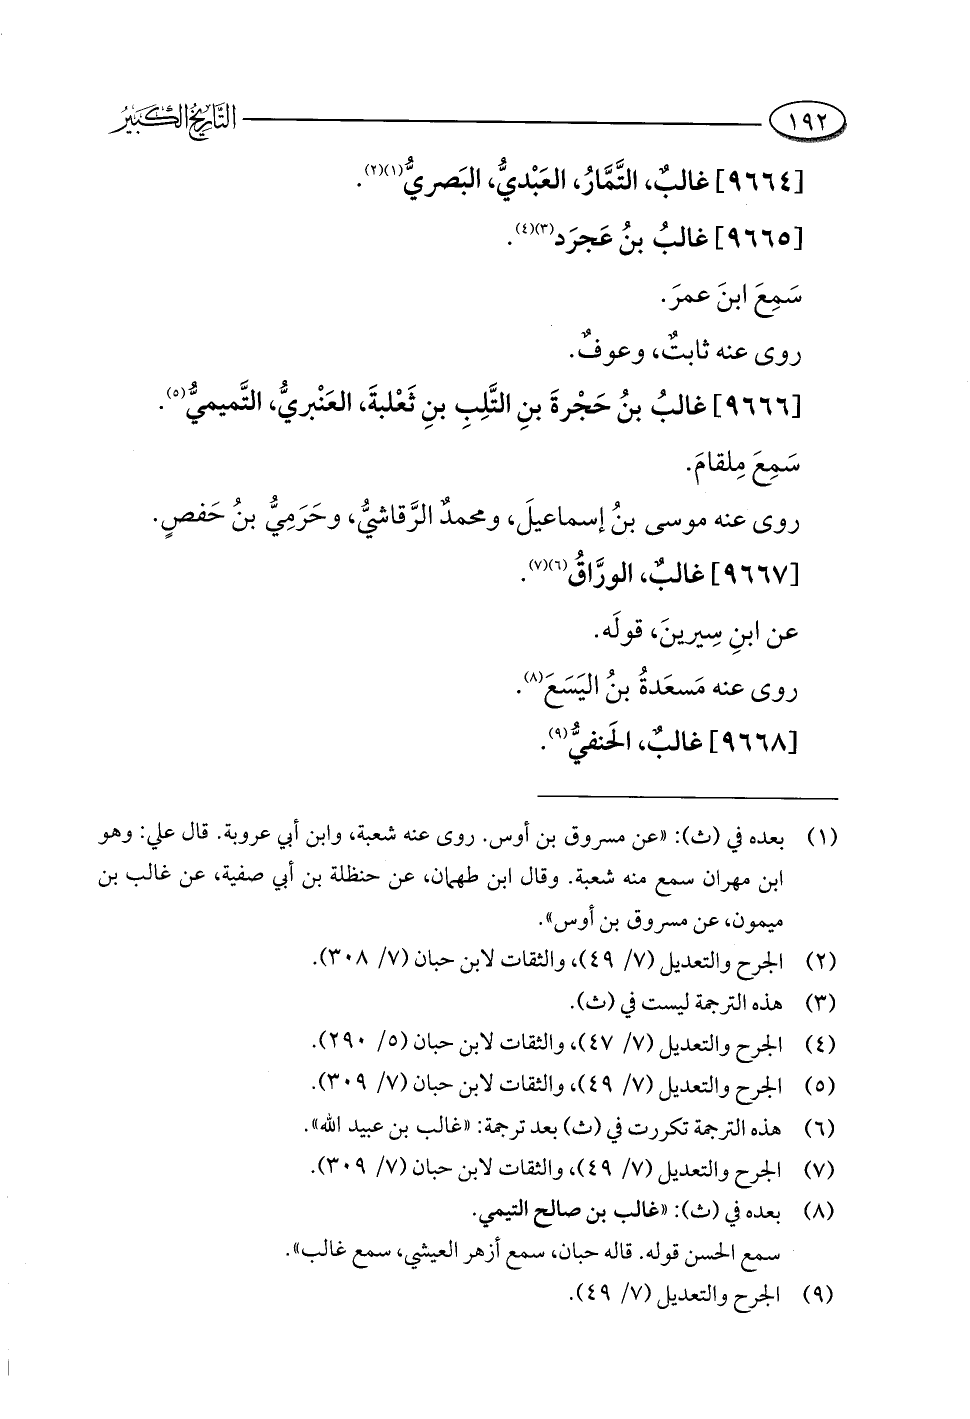 ١٩٢ التَّارِيخُ الكَبِيرُ
[٩٦٦٤] غالبٌ، التَّمَّارُ، العَبْديُّ، البَصريُّ(١)(٢).
[٩٦٦٥] غالبُ بنُ عَجرَد(٣)(٤).
سَمِعَ ابنَ عمرَ.
روى عنه ثابتٌ، وعوفٌ.
[٩٦٦٦] غالبُ بنُ حَجْرةَ بنِ التَّلِبِ بنِ ثَعْلبةَ، العَنْبريُّ، التَّميميُّ(٥).
سَمِعَ مِلقامَ.
روى عنه موسى بنُ إسماعيلَ، ومحمدٌ الرَّقاشيُّ، وحَرَمِيُّ بنُ حَفصٍ.
[٩٦٦٧] غالبٌ، الورَّاقُ(٦)(٧).
عن ابنِ سِيرينَ، قولَه.
روى عنه مَسعَدةُ بنُ اليَسَعَ(٨).
[٩٦٦٨] غالبٌ، الحَنفيُّ(٩).
(١) بعده في (ث): «عن مسروق بن أوس. روى عنه شعبة، وابن أبي عروبة. قال علي: وهو
ابن مهران سمع منه شعبة. وقال ابن طهمان، عن حنظلة بن أبي صفية، عن غالب بن
ميمون، عن مسروق بن أوس».
(٢) الجرح والتعديل (٧/ ٤٩)، والثقات لابن حبان (٧/ ٣٠٨).
(٣) هذه الترجمة ليست في (ث).
(٤) الجرح والتعديل (٧/ ٤٧)، والثقات لابن حبان (٥/ ٢٩٠).
(٥) الجرح والتعديل (٧/ ٤٩)، والثقات لابن حبان (٧/ ٣٠٩).
(٦) هذه الترجمة تكررت في (ث) بعد ترجمة: «غالب بن عبيد الله».
(٧) الجرح والتعديل (٧/ ٤٩)، والثقات لابن حبان (٧/ ٣٠٩).
(٨) بعده في (ث): «غالب بن صالح التيمي.
سمع الحسن قوله. قاله حبان، سمع أزهر العيشي، سمع غالب».
(٩) الجرح والتعديل (٧/ ٤٩).